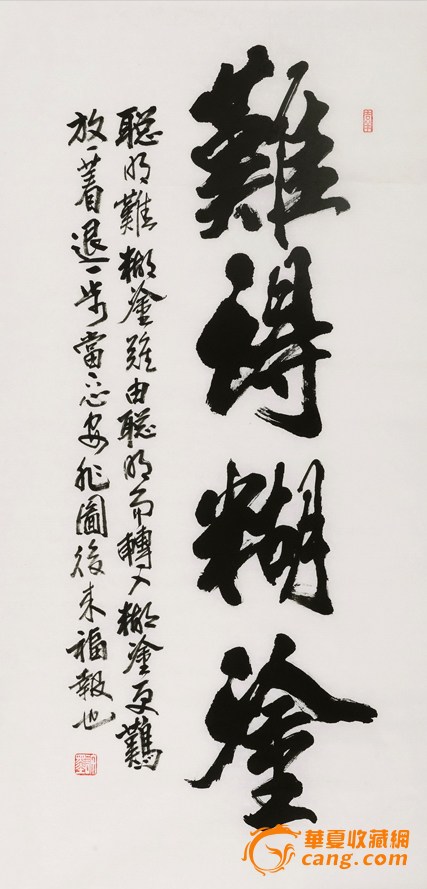 難得糊塗
聪明難糊塗難由聪明而轉入糊塗更難
放一著退一步當下心安非圖後来福報也
華夏收藏網
cang.com